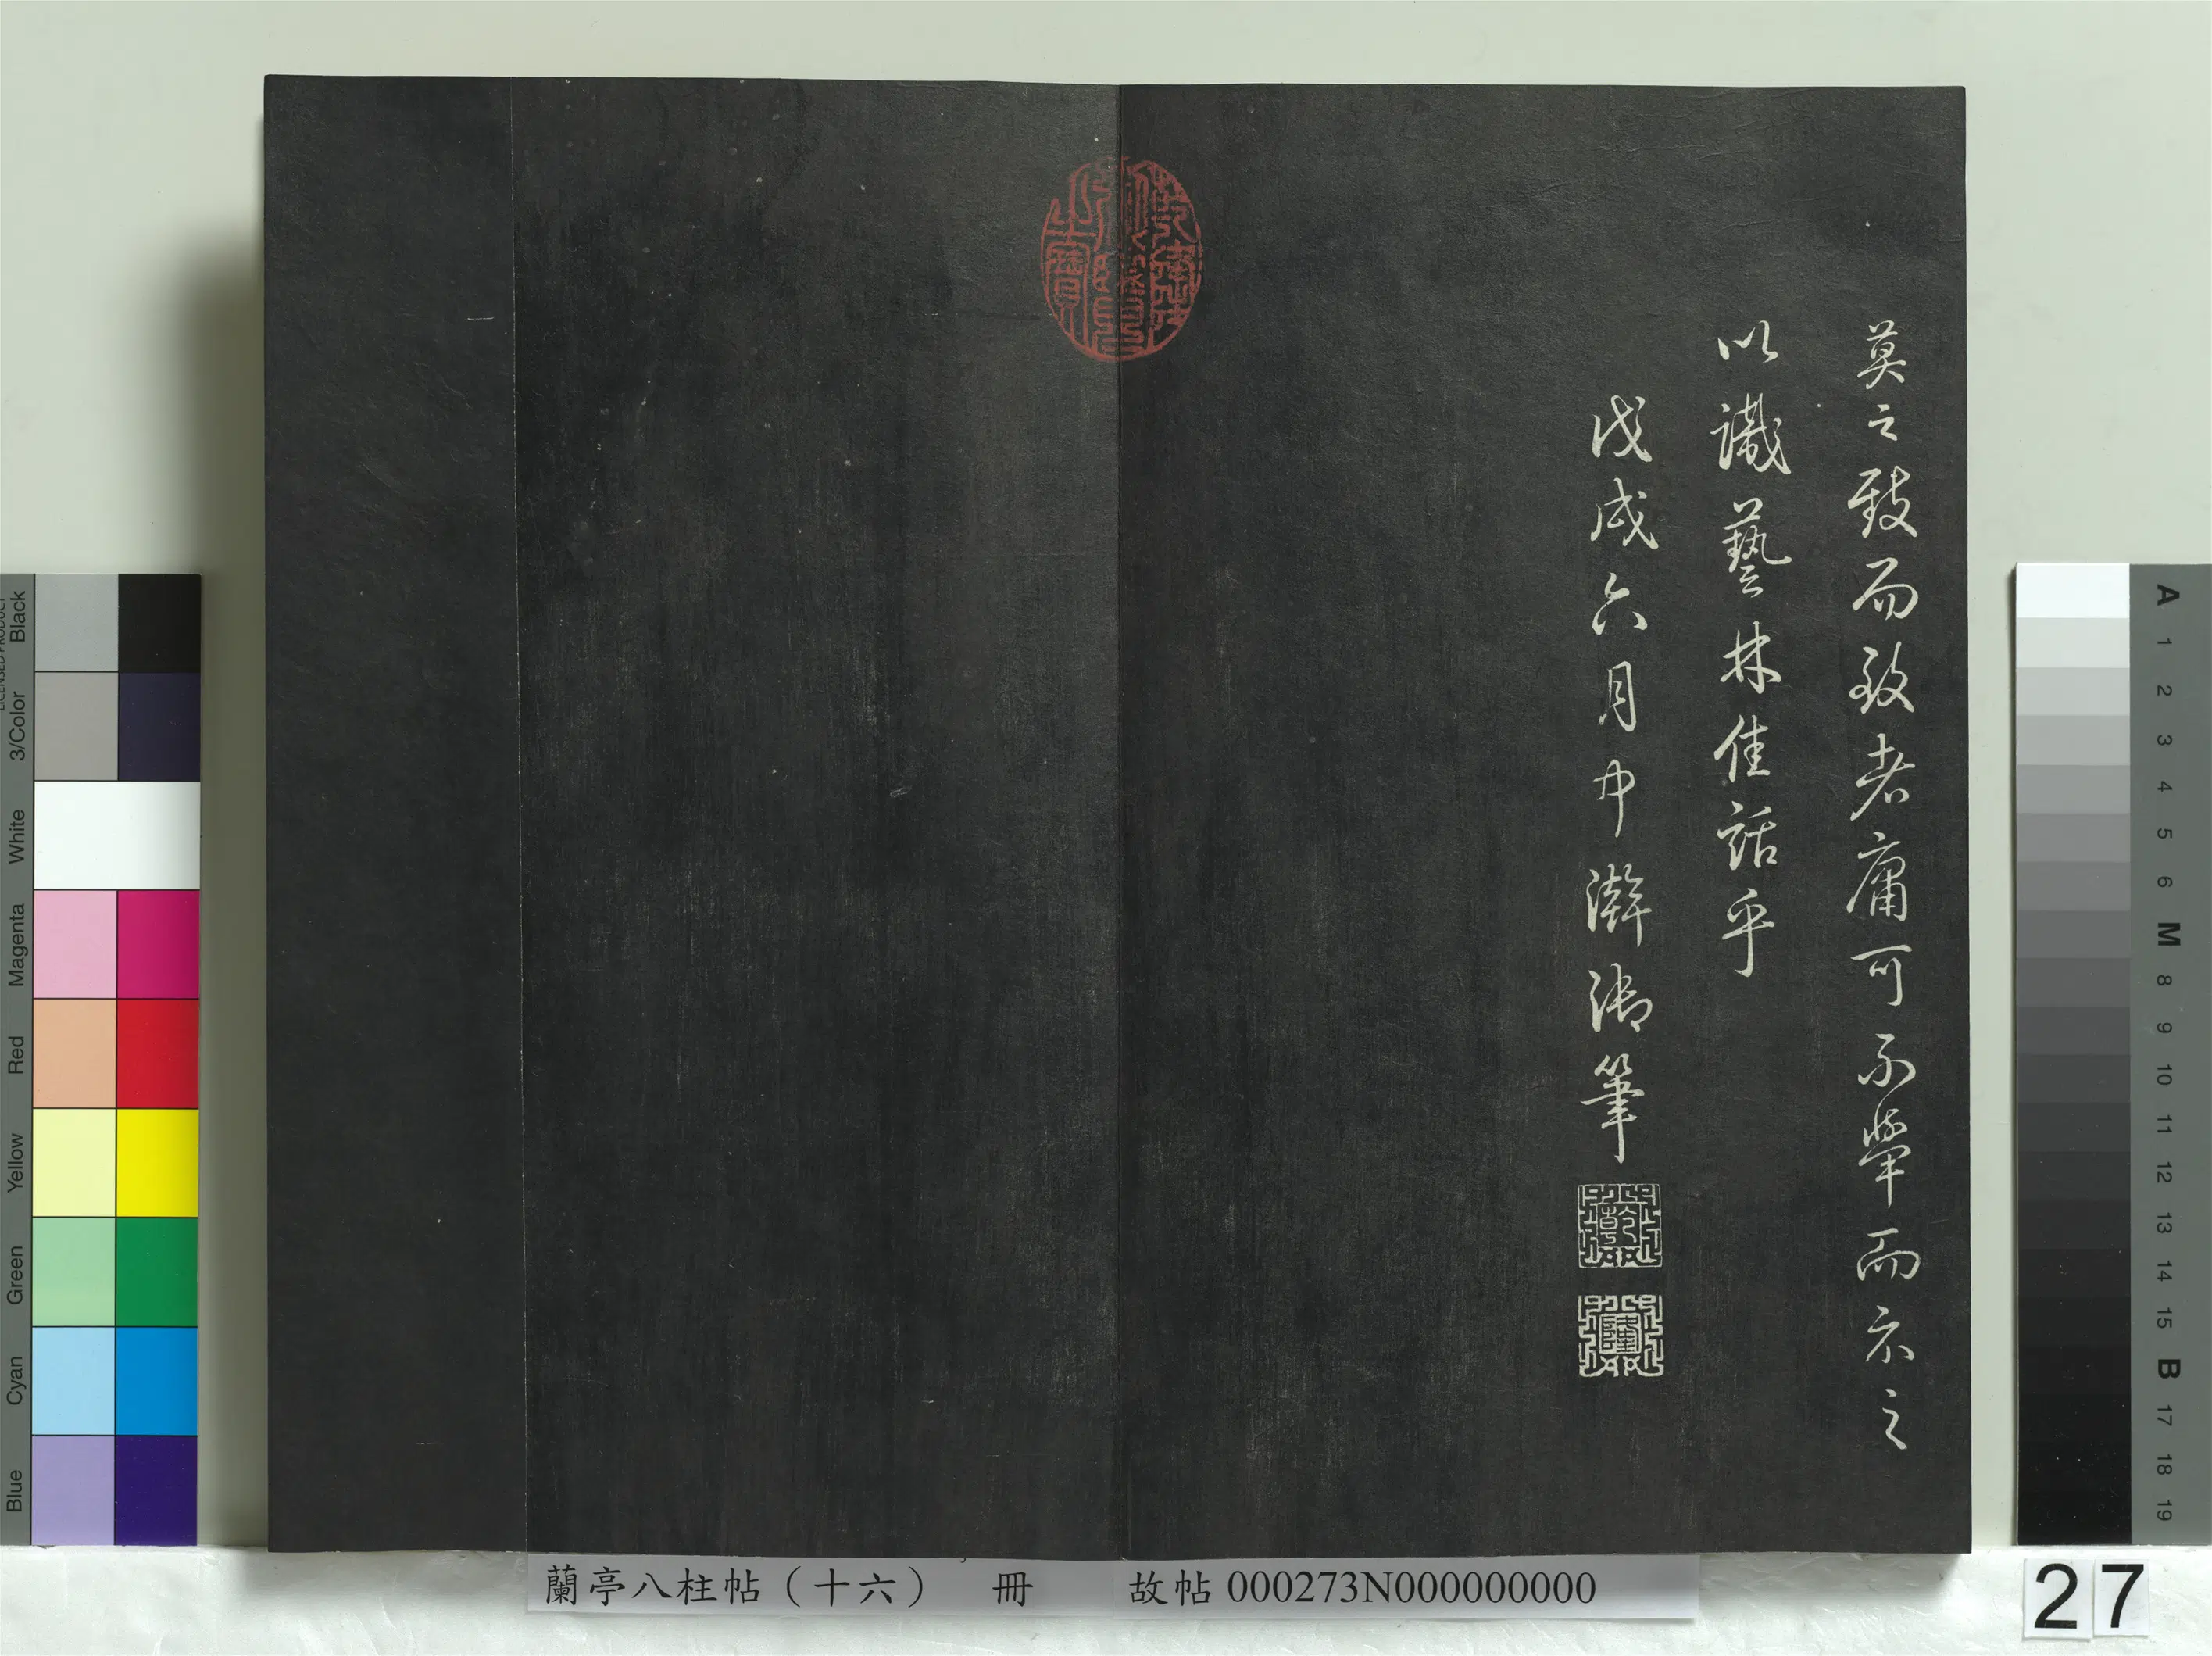 莫之致而致者庸可不舉而示之
以識藝林佳話乎
戊戌六月中澣御筆
乾
隆
乾隆御覽之寶
蘭亭八柱帖（十六） 冊 故帖 000273N000000000
27
Black
3/Color
White
Magenta
Red
Yellow
Green
Cyan
Blue
A 1 2 3 4 5 6 M 8 9 10 11 12 13 14 15 B 17 18 19